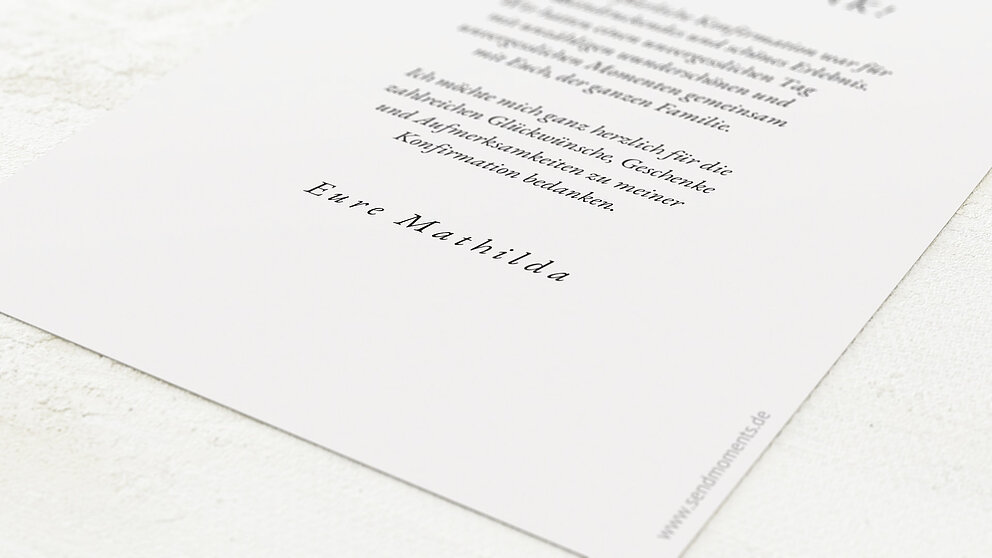 Konfirmation war für
und schönes Erlebnis.
Wir hatten einen unvergesslichen Tag
mit unzähligen wunderschönen und
unvergesslichen Momenten gemeinsam
mit Euch, der ganzen Familie.
Ich möchte mich ganz herzlich für die
zahlreichen Glückwünsche, Geschenke
und Aufmerksamkeiten zu meiner
Konfirmation bedanken.
Eure Mathilda
www.sendmoments.de